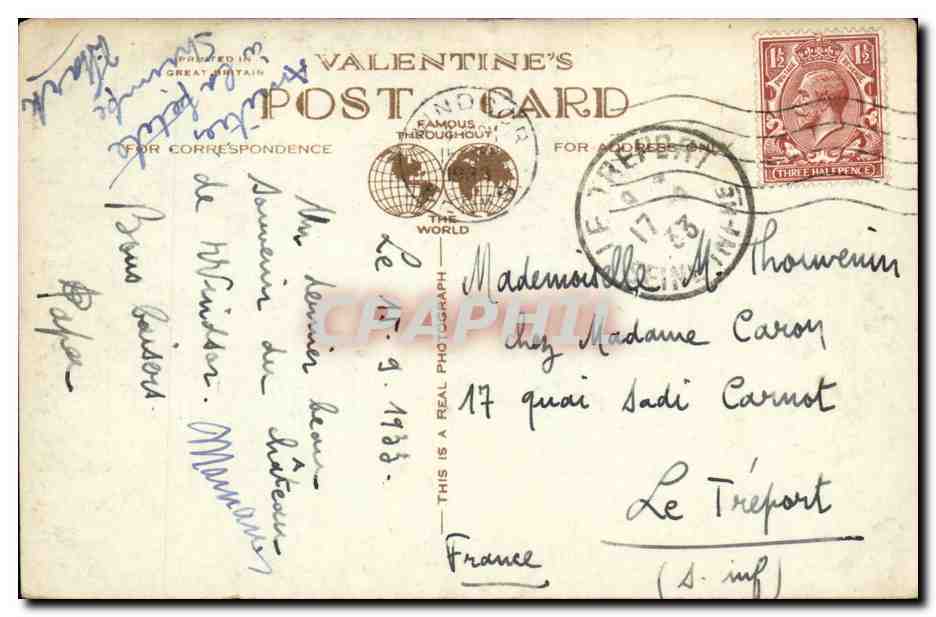 PRINTED IN
GREAT BRITAIN
VALENTINE'S
POST CARD
FAMOUS
THROUGHOUT
THE
WORLD
FOR CORRESPONDENCE
FOR ADDRESS ONLY
THIS IS A REAL PHOTOGRAPH
1½ 1½
THREE HALFPENCE
LE TREPORT
17
33
SEINE INF-RE
Le 15.9.1933.
Un dernier beau
souvenir du château
de Windsor.
Bons baisers.
Papa
Maman
Amitiés
à la petite
Mademoiselle M. Thouvenin
chez Madame Caron
17 quai Sadi Carnot
Le Tréport
(S. inf)
France
CPAPHIL